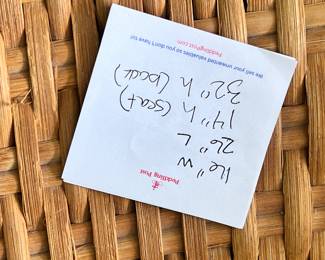 Peddling Post
16" W
26" L
14" h (seat)
32" h (back)
We sell your unwanted valuables so you don't have to!
PeddlingPost.com